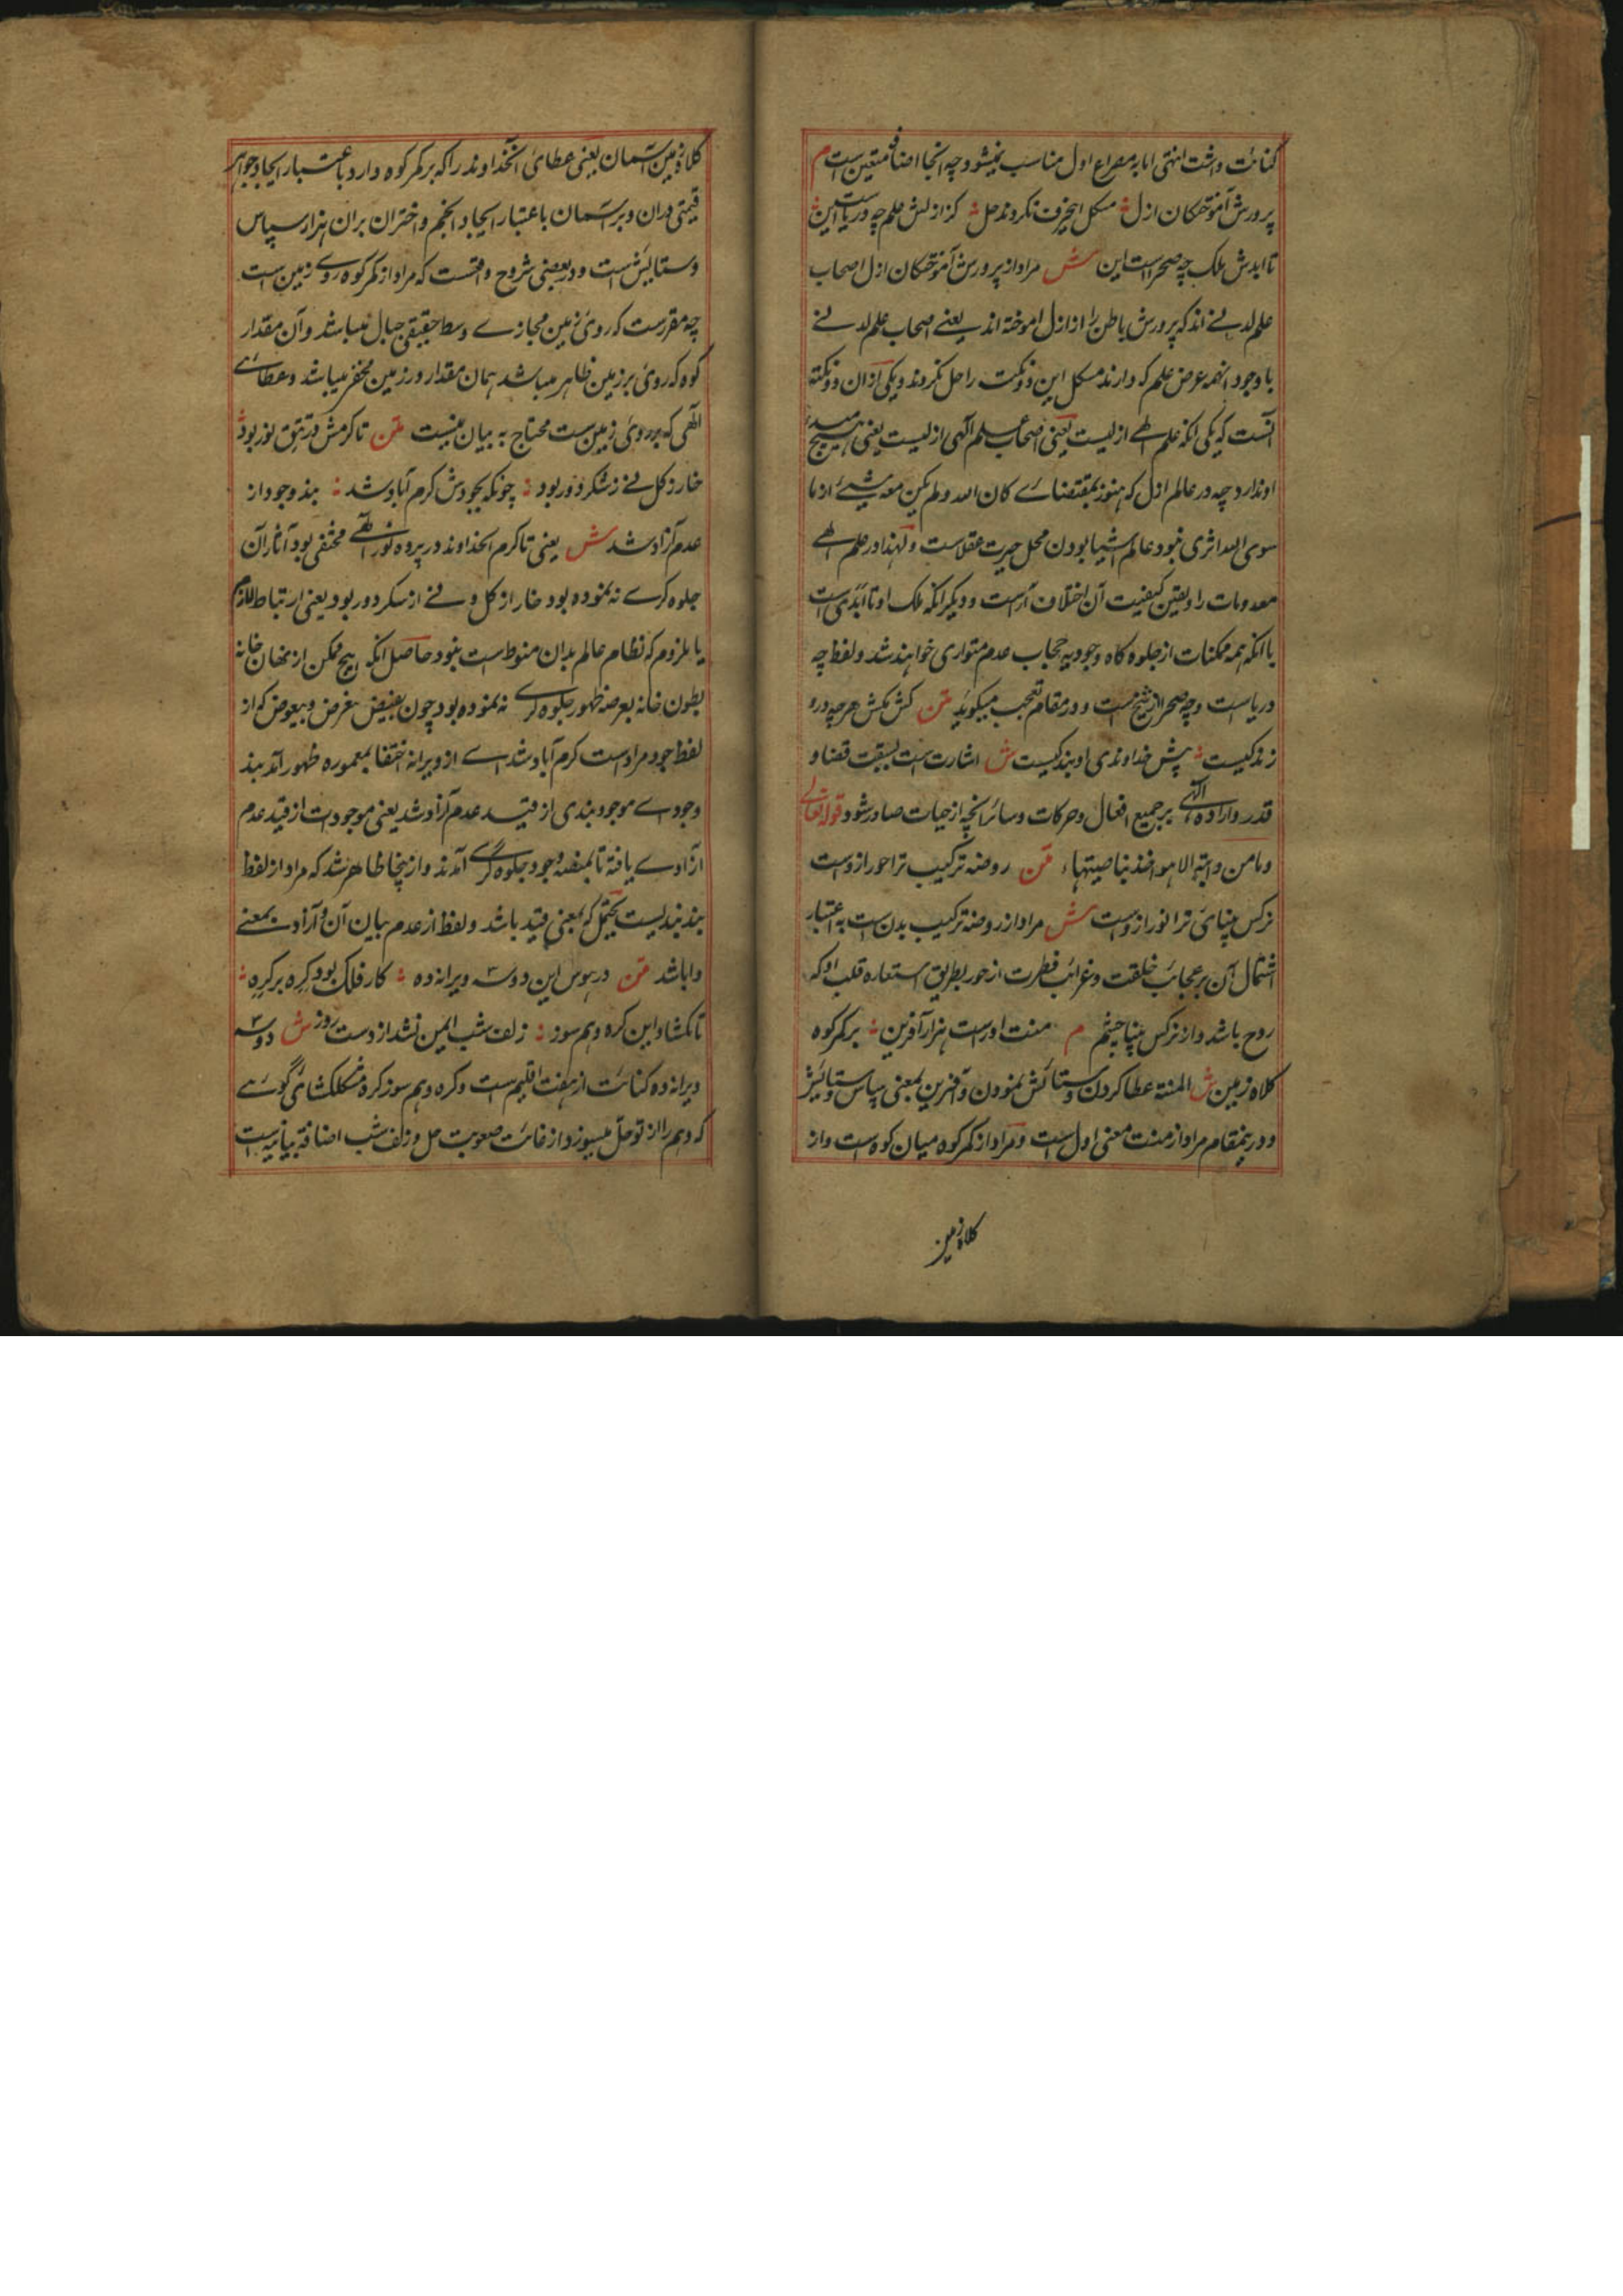 کنائت داشت انتهی اما به مصراع اول مناسب نمیشود چه اینجا اضافه متعین است م
پرورش آموختکان ازل ؞ مشکل اینحرف نکردند حل ؞ کز ازلش علم چه دریاست این ؞
تا ابدش ملک چه صحراست این ش مراد از پرورش آموختکان ازل اصحاب
علم لدنے اند که پرورش باطن را از ازل اموخته اند یعنے اصحاب علم لدنے
با وجود اینهمه عرض علم که دارند مشکل این دو نکته را حل نکردند و یکی ازان دو نکته
آنست که یکی انکه علم الهے ازلیست یعنی اصحاب علم آلهی ازلیست یعنی هیچ مبدء
او ندارد چه در عالم ازل که هنوز بمقتضاے کان الله و لم یکن معه شیے از ما
سوی الله اثری نبود عالم اشیا بودن محل حیرت عقلاست و لهذا در علم الهے
معدومات را و یقین کیفیت آن اختلاف آراست و دیکر انکه ملک او تا ابدی است
با انکه همه ممکنات از جلوه کاه وجود به حجاب عدم متواری خواهند شد و لفظ چه
دریاست و چه صحرا از شیخ است و در مقام تعجب میکوید متن کش مکش هر چه درو
زندکیست ؞ پیش خداوندی او بندکیست ش اشارت است بسبقت قضا و
قدر و اراده الهی بر جمیع افعال و حرکات و سائر انچه از حیات صادر شود قوله تعالی
وما من دابة الا هو اخذ بناصیتها متن روضه ترکیب ترا حور ازوست
نرکس بینای ترا نور ازوست ش مراد از روضه ترکیب بدن است به اعتبار
اشتمال آن بر عجائب خلقت و غرائب فطرت از حور بطریق استعاره قلب او که
روح باشد و از نرکس بینا چشم م منت او راست هزار آفرین ؞ بر کمر کوه
کلاه زمین ش المنة عطا کردن و ستائش نمودن و آفرین بمعنی سپاس و ستایش
و درینمقام مراد از منت معنی اول است و مراد از کمر کوه میان کوه است و از
کلاه زمین
کلاه زمین آسمان یعنی عطائی آنخداوند را که بر کمر کوه دارد باعتبار ایجاد جواهر
قیمتی دران و بر آسمان باعتبار ایجاد انجم و اختران بران هزار سپاس
و ستایش است و در بعضی شروح واقست که مراد از کمر کوه روے زمین است
چه مقررست که روی زمین مجازے وسط حقیقی جبال میباشد و آن مقدار
کوه که روی بر زمین ظاهر میباشد همان مقدار در زمین محفر میباشد و عطاے
آلهی که بر روی زمین ست محتاج به بیان نیست متن تا کرمش در تتق نور بود ؞
خار ز کل نے ز شکر دور بود ؞ چونکه بجودش کرم آباد شد ؞ بند وجود از
عدم آزاد شد ش یعنی تا کرم انخداوند در پرده نور الهے مختفی بود آثار آن
جلوه کرے نه نموده بود خار از کل و نے از شکر دور بود یعنی ارتباط لازم
یا ملزوم که نظام عالم بدان منوط ست نبود حاصل انکه هیچ ممکن از نهان خانه
بطون خانه بعرصه ظهور جلوه کرے نه نموده بود چون بفیض بغرض و بیعوض که از
لفظ جود مراد است کرم آباد شد اے از ویرانه اختفا بمعموره ظهور آمد بند
وجودے موجود بندی از قید عدم آزاد شد یعنی موجودات از قید عدم
آزادے یافته تا بمنصه وجود جلوه گرے آمدند و از ینجا ظاهر شد که مراد از لفظ
بند بندیست یحتمل که بمعنی قید باشد و لفظ از عدم بیان آن و آزاد بمعنے
وا باشد متن در هوس این دو سه ویرانه ده ؞ کار فلک بود کره بر کره ؞
تا نکشاد این کره وهم سوز ؞ زلف شب ایمن نشد از دست روز ش دو سه
ویرانه ده کنائت از هفت اقلیم ست و کره وهم سوز کره مشکلکشای گوئے
که وهم را از تو حل میسوزد از غائت صعوبت حل و زلف شب اضافة بیانیه است